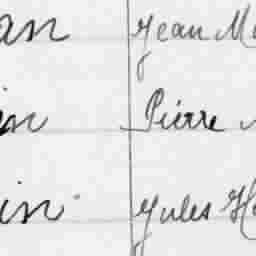 an Jean M
in Pierre
in Jules H